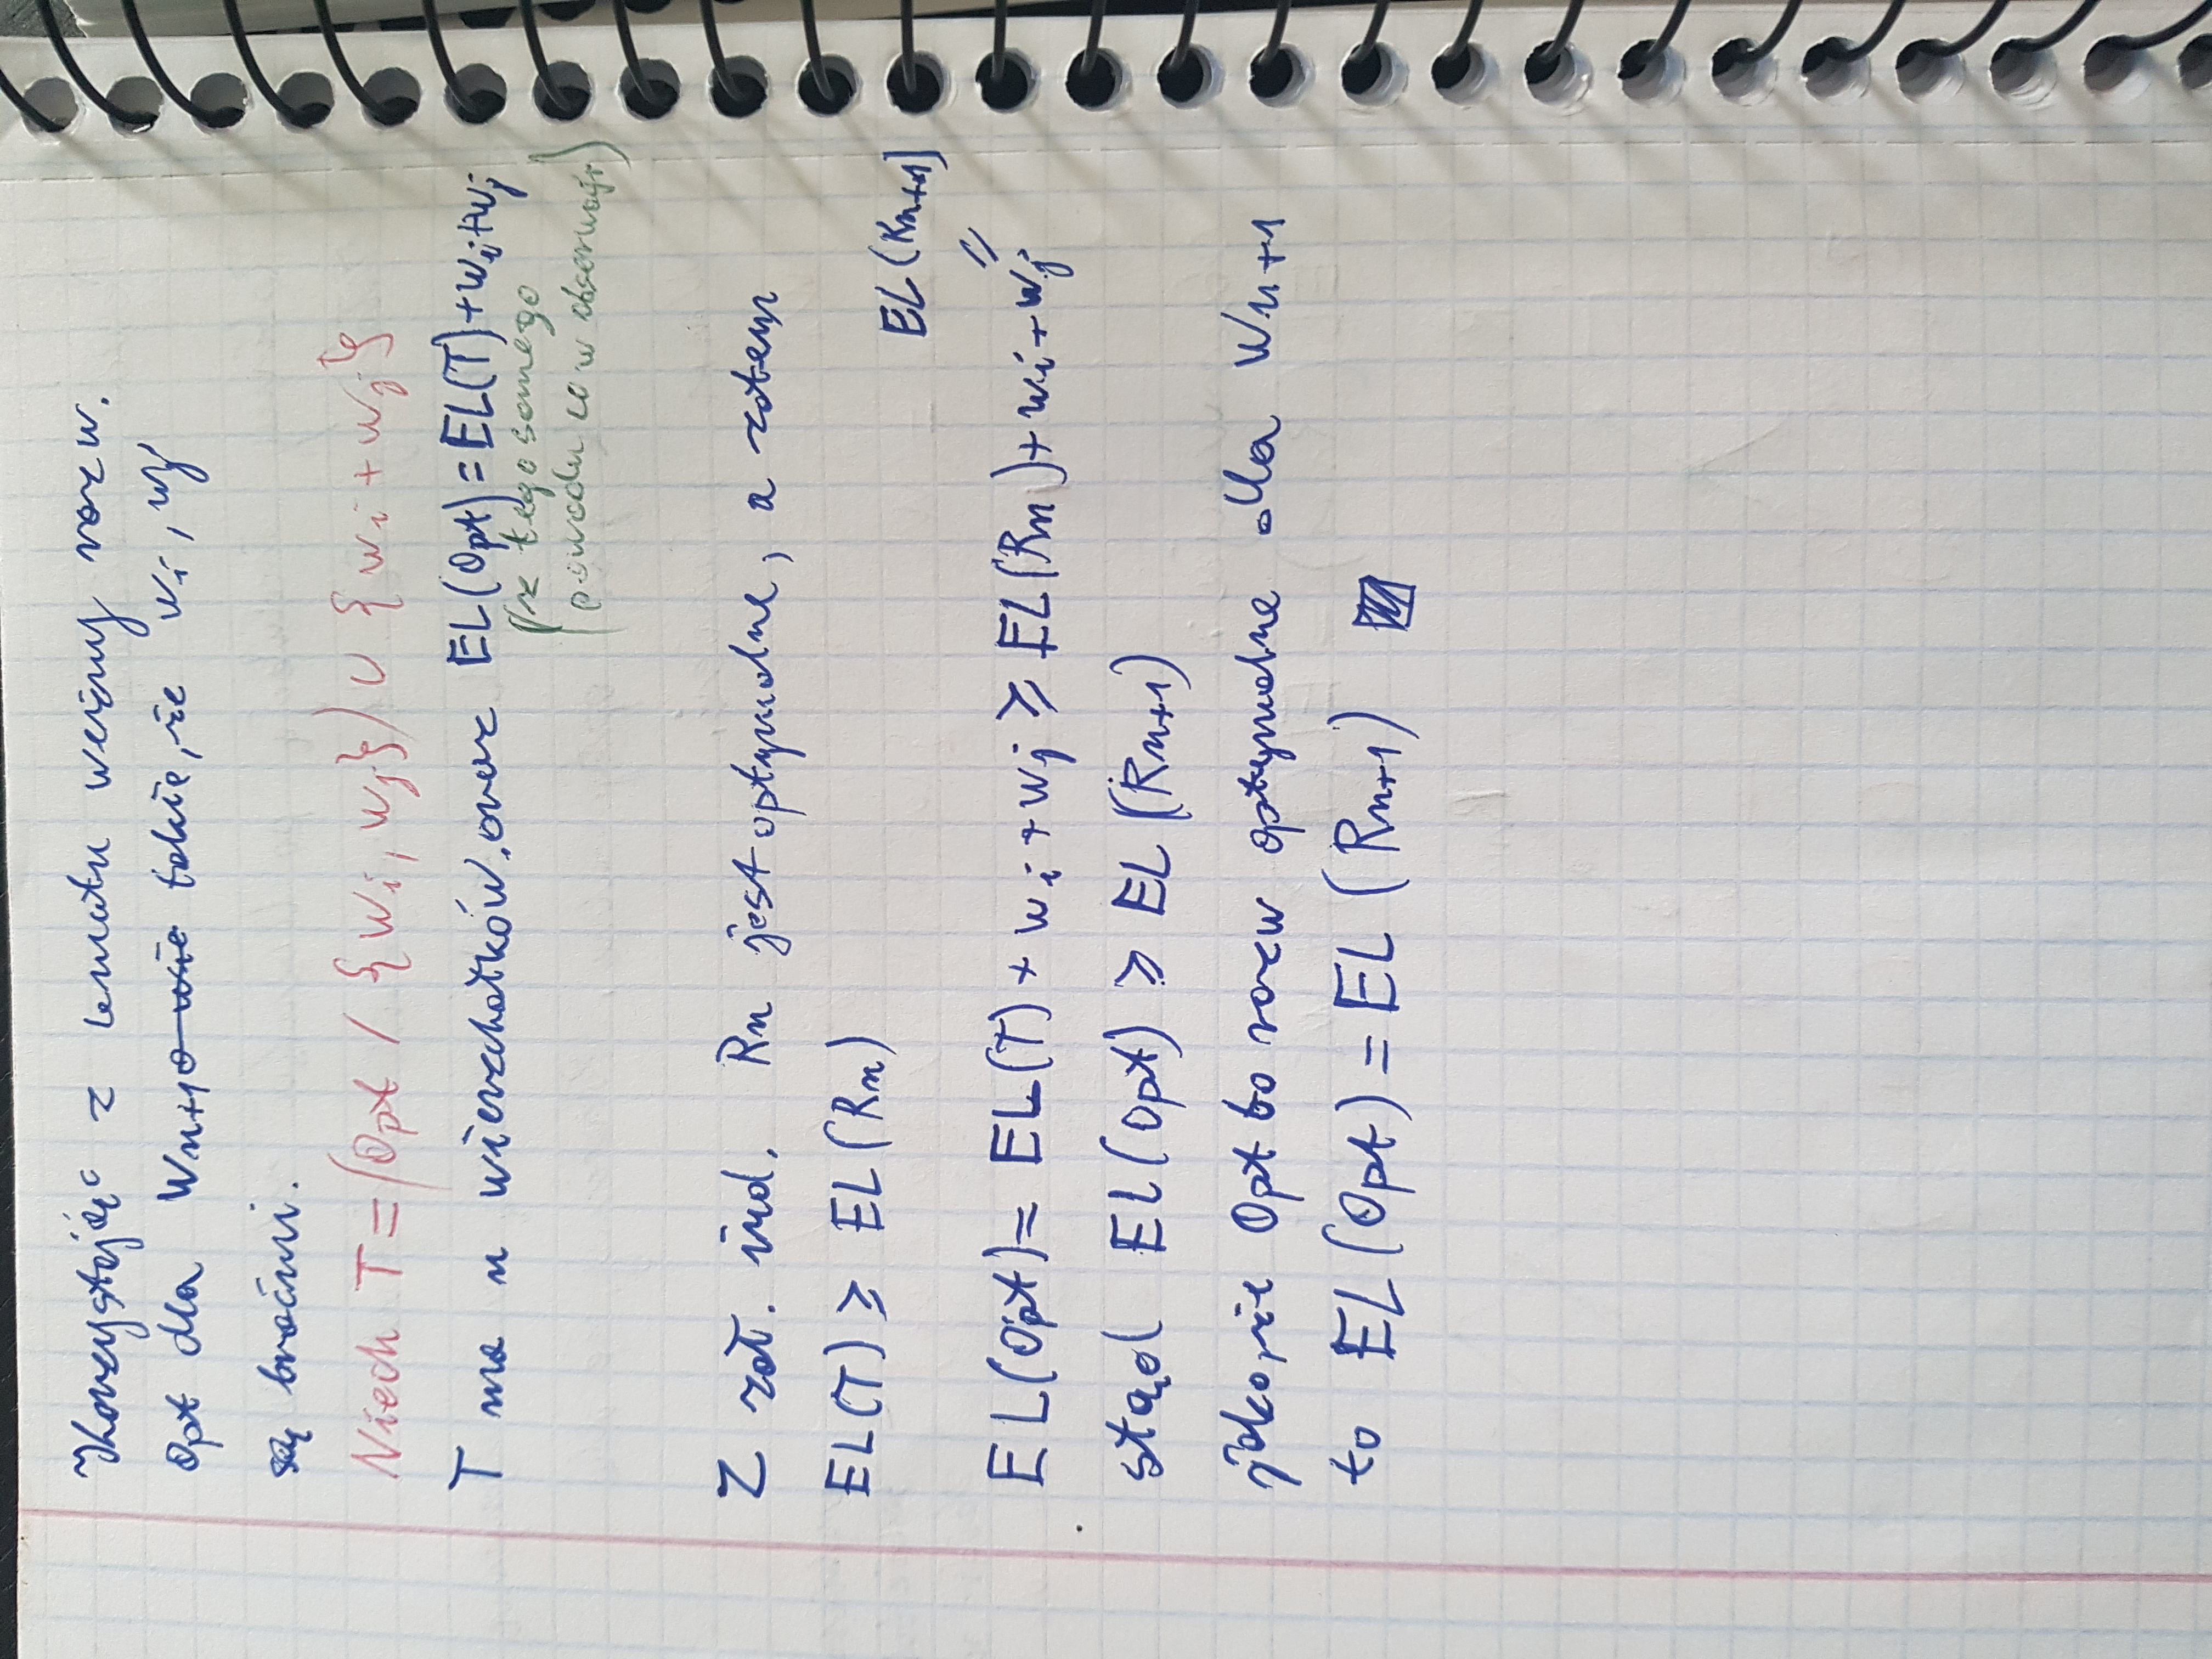 Korzystając z lematu weźmy rozw.
Opt dla Wn+1 o wie takie, że wi, wj
są braćmi.
Niech T = (Opt / {wi, wj}) ∪ {wi + wj}
T ma n wierzchołków. oraz EL(Opt) = EL(T) + wi + wj
(z tego samego
powodu co w obserwacji)
Z zał. ind. Rn jest optymalne, a zatem
EL(T) ≥ EL(Rn)
EL(Rn+1)
=
EL(Opt) = EL(T) + wi + wj ≥ EL(Rn) + wi + wj
stąd EL(Opt) ≥ EL(Rn+1)
jako, że Opt to rozw optymalne dla Wn+1
to EL(Opt) = EL(Rn+1)